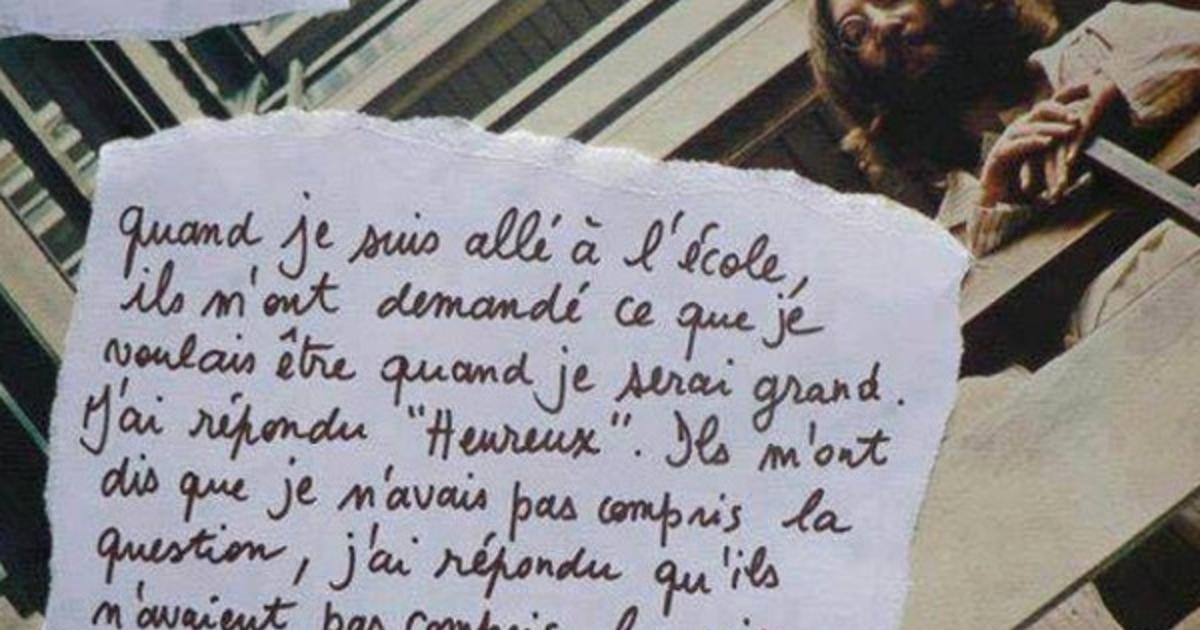 quand je suis allé à l'école,
ils m'ont demandé ce que je
voulais être quand je serai grand.
J'ai répondu "Heureux". Ils m'ont
dis que je n'avais pas compris la
question, j'ai répondu qu'ils
n'avaient pas compris la vie